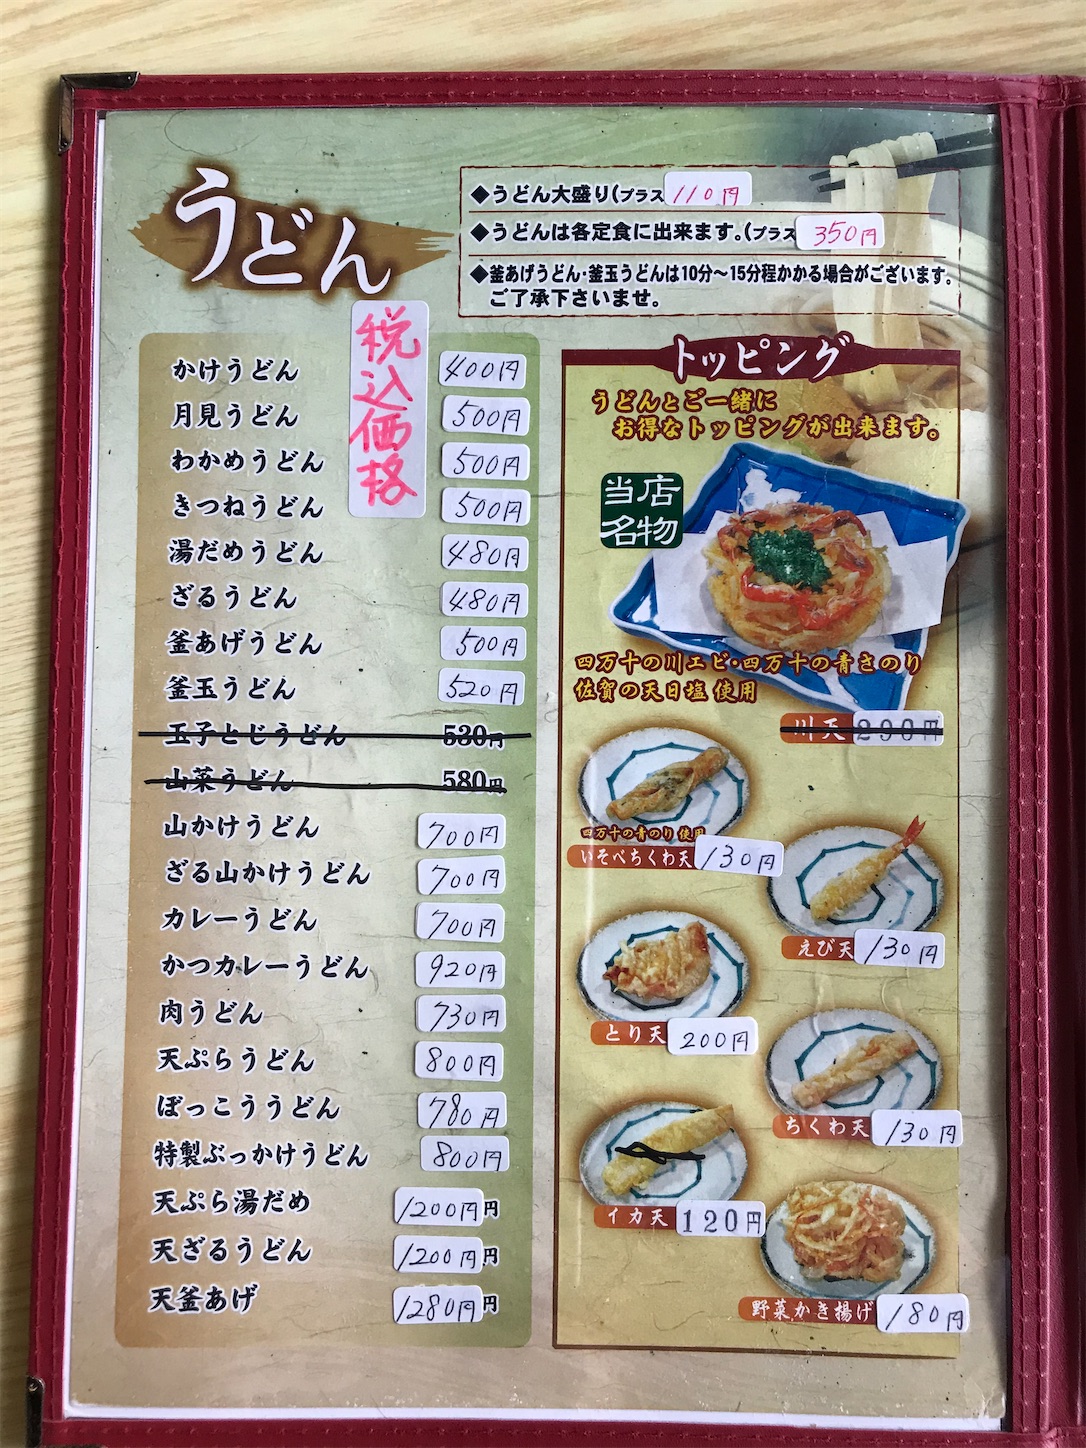 うどん
◆うどん大盛り(プラス110円
◆うどんは各定食に出来ます。(プラス350円
◆釜あげうどん・釜玉うどんは10分〜15分程かかる場合がございます。
ご了承下さいませ。
税込価格
かけうどん 400円
月見うどん 500円
わかめうどん 500円
きつねうどん 500円
湯だめうどん 480円
ざるうどん 480円
釜あげうどん 500円
釜玉うどん 520円
玉子とじうどん 530円
山菜うどん 580円
山かけうどん 700円
ざる山かけうどん 700円
カレーうどん 700円
かつカレーうどん 920円
肉うどん 730円
天ぷらうどん 800円
ぼっこううどん 780円
特製ぶっかけうどん 800円
天ぷら湯だめ 1200円円
天ざるうどん 1200円円
天釜あげ 1280円円
トッピング
うどんとご一緒に
お得なトッピングが出来ます。
当店
名物
四万十の川エビ・四万十の青さのり
佐賀の天日塩 使用
川天 290円
四万十の青のり 使用
いそべちくわ天 130円
えび天 130円
とり天 200円
ちくわ天 130円
イカ天 120円
野菜かき揚げ 180円